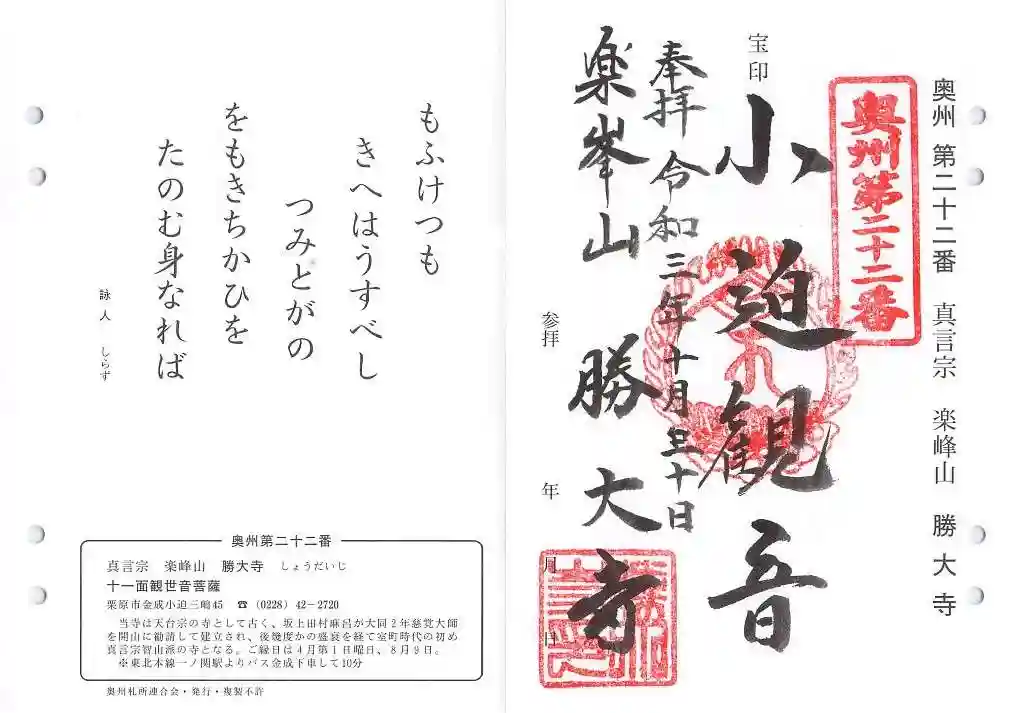 奥州 第二十二番 真言宗 楽峰山 勝大寺
奥州第二十二番
宝印
小迫観音
奉拝 令和三年十月三十日
楽峯山 勝大寺
参拝 年 月 日
もふけつも
きへはうすべし
つみとがの
をもきちかひを
たのむ身なれば
詠人 しらず
奥州第二十二番
真言宗 楽峰山 勝大寺 しょうだいじ
十一面観世音菩薩
栗原市金成小迫三嶋45 ☎ (0228) 42-2720
当寺は天台宗の寺として古く、坂上田村麻呂が大同2年慈覚大師
を開山に勧請して建立され、後幾度かの盛衰を経て室町時代の初め
真言宗智山派の寺となる。ご縁日は4月第1日曜日、8月9日。
※東北本線一ノ関駅よりバス金成下車して10分
奥州札所連合会・発行・複製不許